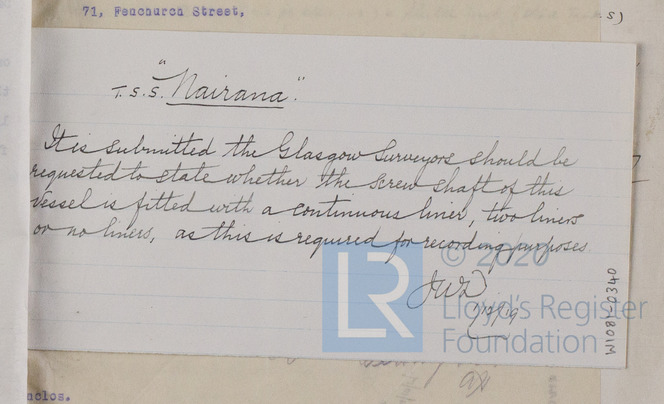 71, Fenchurch Street,
s)
T.S.S. "Nairana".
It is submitted the Glasgow Surveyors should be
requested to state whether the screw shaft of this
vessel is fitted with a continuous liner, two liners
or no liners, as this is required for recording purposes.
© 2020
LR
Lloyd's Register
Foundation
W1081-0340
nclos.